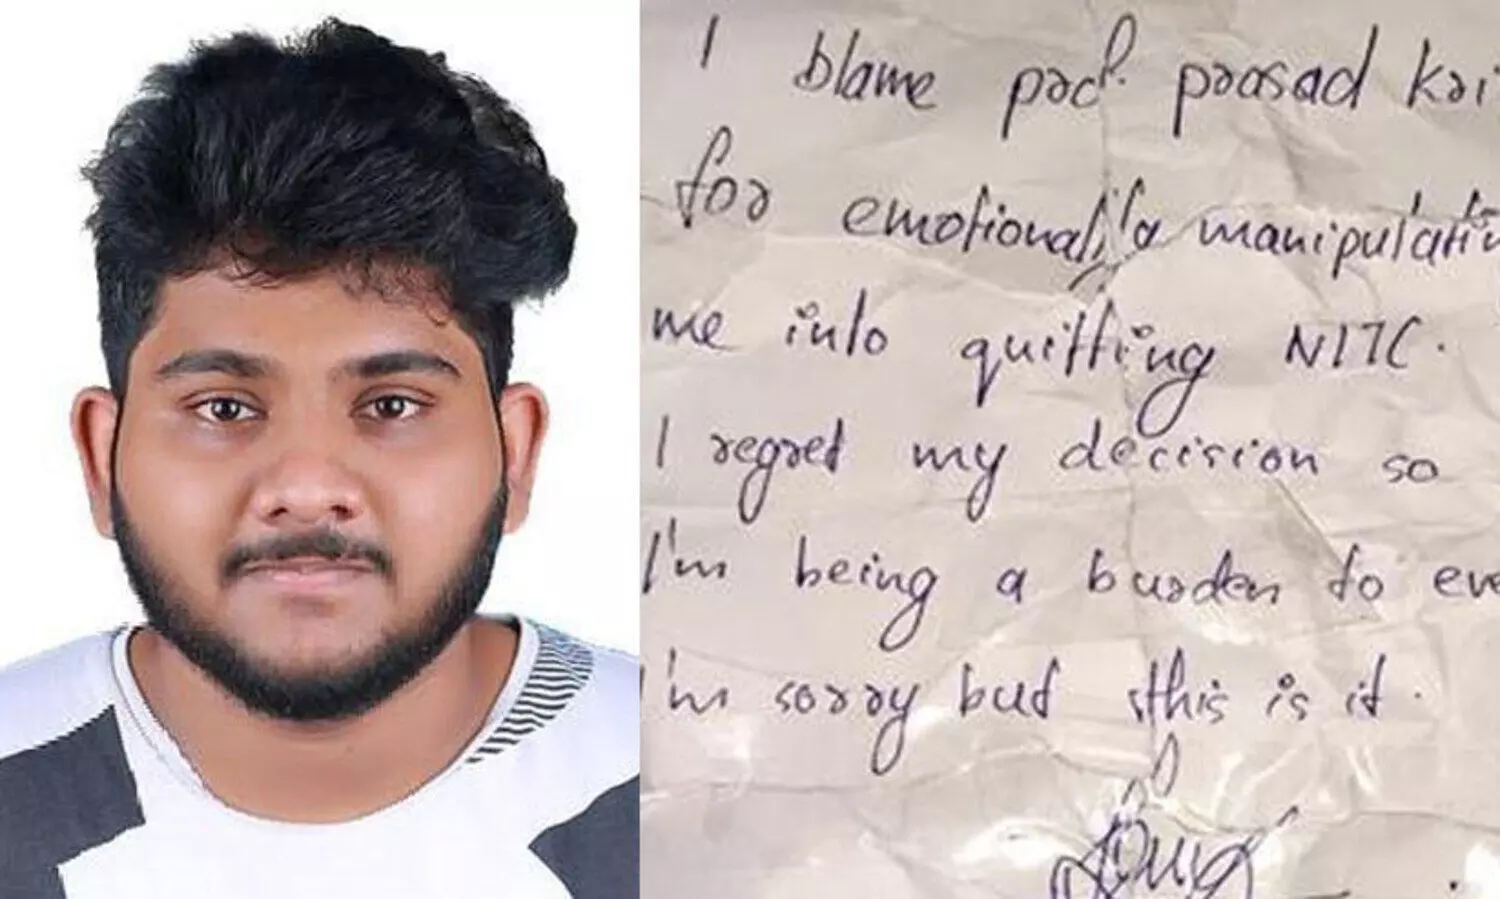 I blame prof. prasad kri
for emotionally manipulatin
me into quitting NITC.
I regret my decision so
I'm being a burden to eve
I'm sorry but this is it.